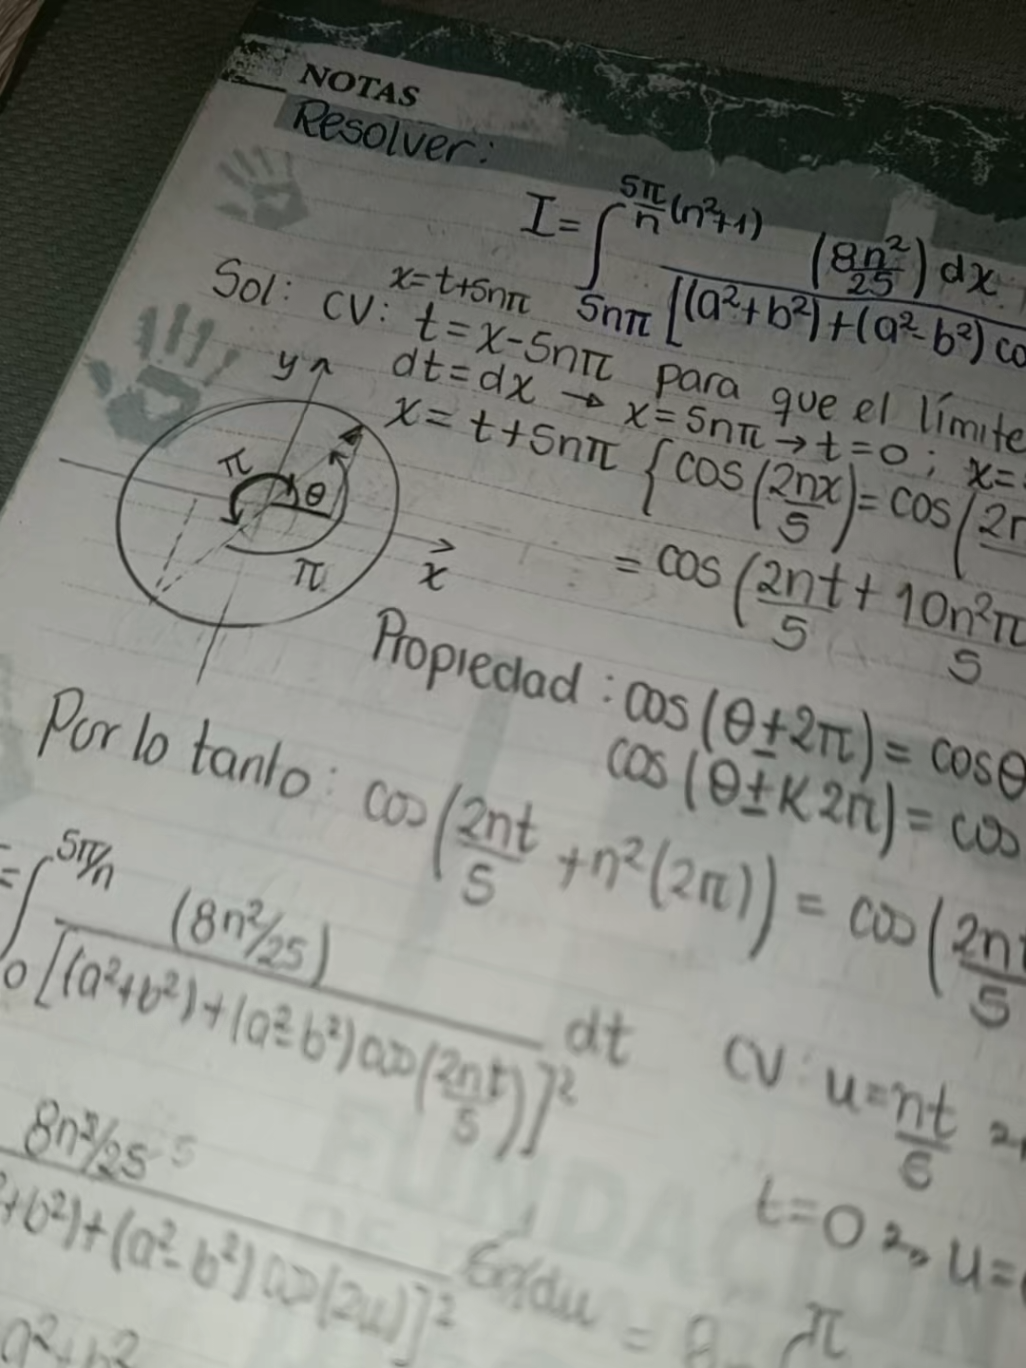 NOTAS
Resolver:
I = ∫_{5nπ}^{5π/n (n²+1)} (8n²/25) dx / [(a²+b²)+(a²-b²) co
Sol: CV: x=t+5nπ
t=x-5nπ para que el límite
dt=dx → x=5nπ → t=0 ; x=
x=t+5nπ { cos(2nx/5) = cos(2n
= cos(2nt/5 + 10n²π/5
y
π
θ
π
x
Propiedad: cos(θ±2π) = cosθ
cos(θ±K2π) = cos
Por lo tanto: cos(2nt/5 + n²(2π)) = cos(2nt/5
= ∫_0^{5π/n} (8n²/25) / [(a²+b²)+(a²-b²)cos(2nt/5)]² dt CV: u=nt/5
t=0 u=
8n²/25 / +b²)+(a²-b²)cos(2u)]² du = 8 π
a²+b²